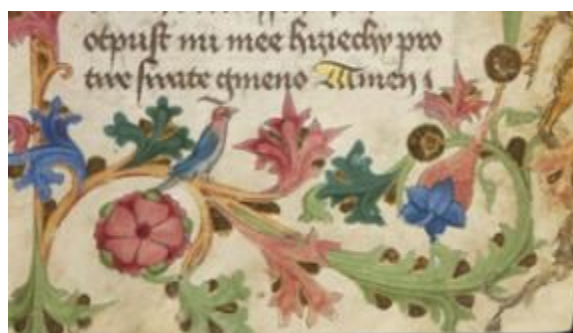 otpuſt mi mee hrziechy pro
twe ſwate gmeno Amen